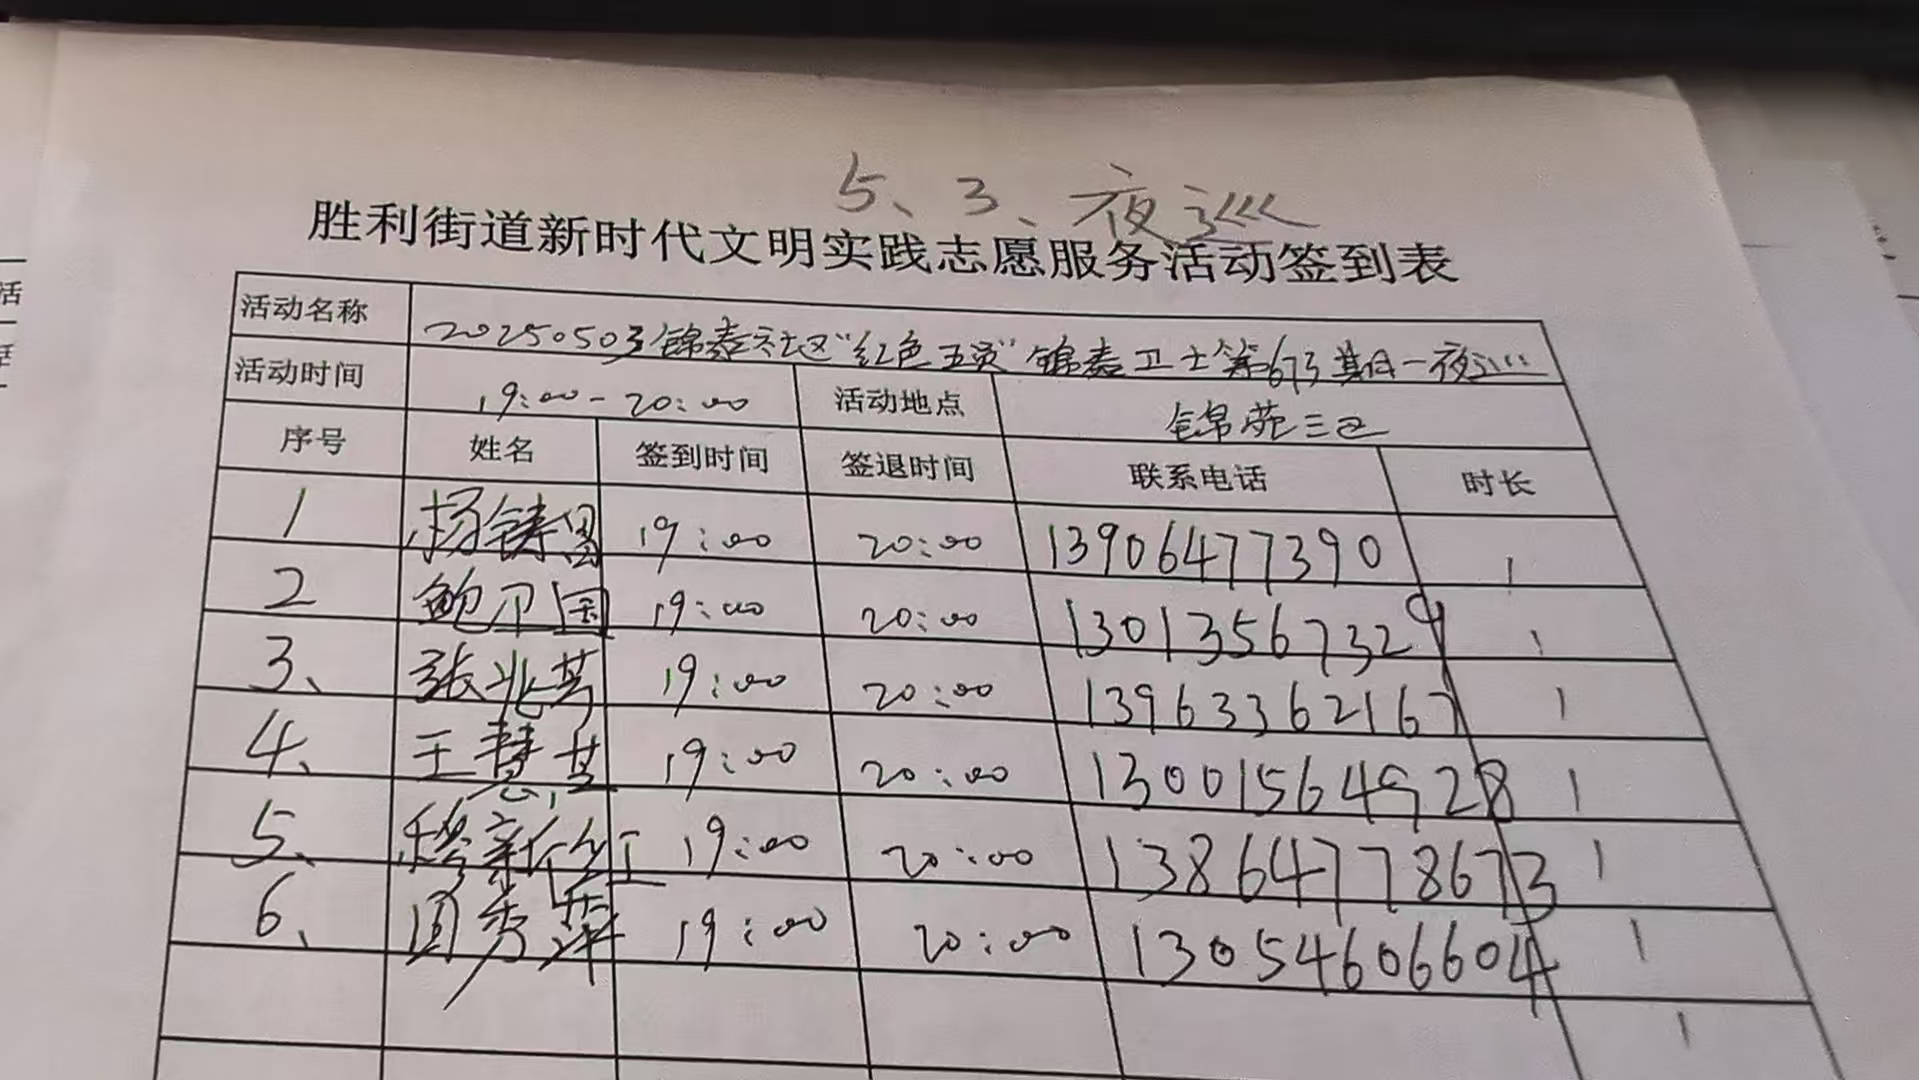 5、3、夜巡
胜利街道新时代文明实践志愿服务活动签到表
活动名称 20250503锦泰社区"红色五员"锦泰卫士第673期一夜巡
活动时间 19:00-20:00 活动地点 锦苑三区
序号 姓名 签到时间 签退时间 联系电话 时长
1 杨铸国 19:00 20:00 13906477390 1
2 鲍卫国 19:00 20:00 13013567329 1
3、 张兆芬 19:00 20:00 13963362167 1
4、 王慧芸 19:00 20:00 13001564928 1
5、 穆新红 19:00 20:00 13864778673 1
6、 周秀萍 19:00 20:00 13054606604 1
1
活